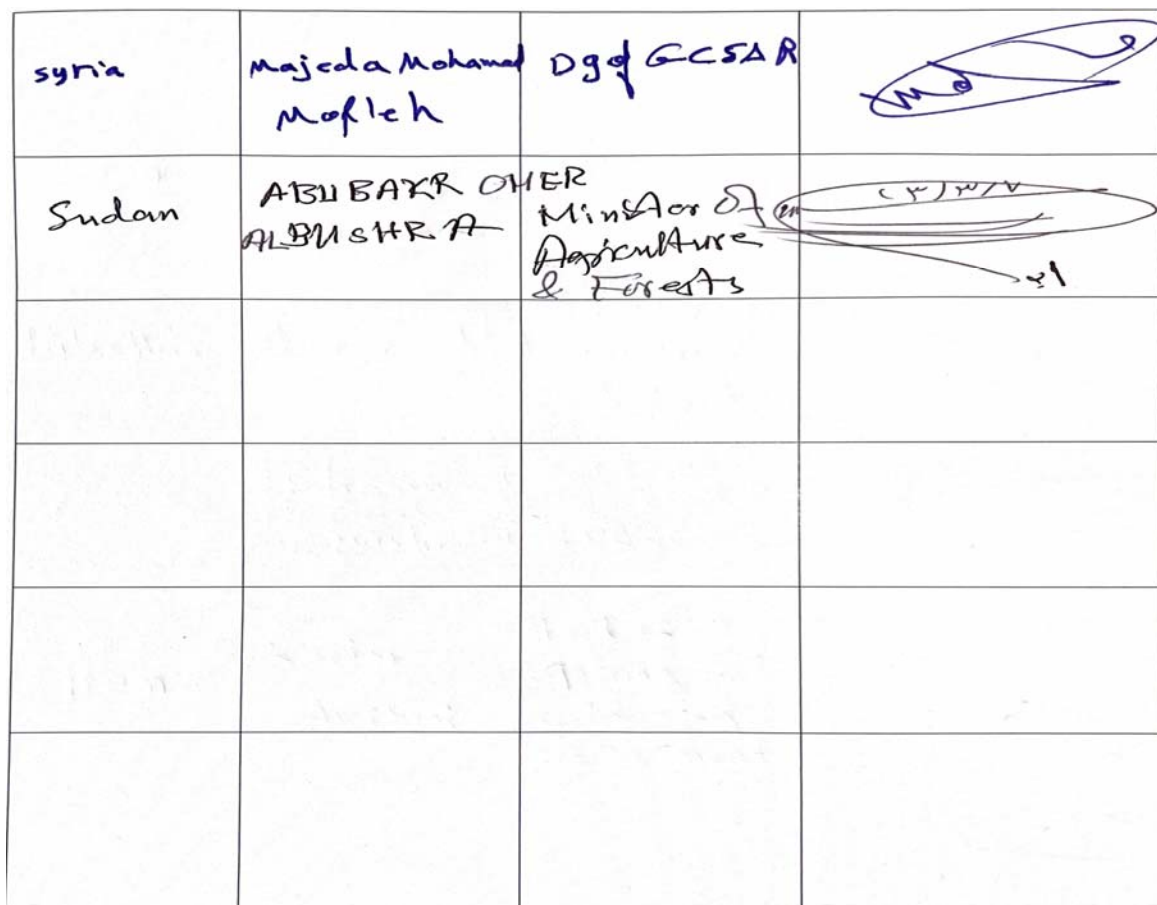 syria
Majeda Mohamad
Mofleh
Dg of GCSAR
Sudan
ABUBAKR OMER
ALBUSHRA
Minister Of
Agriculture
& Forests